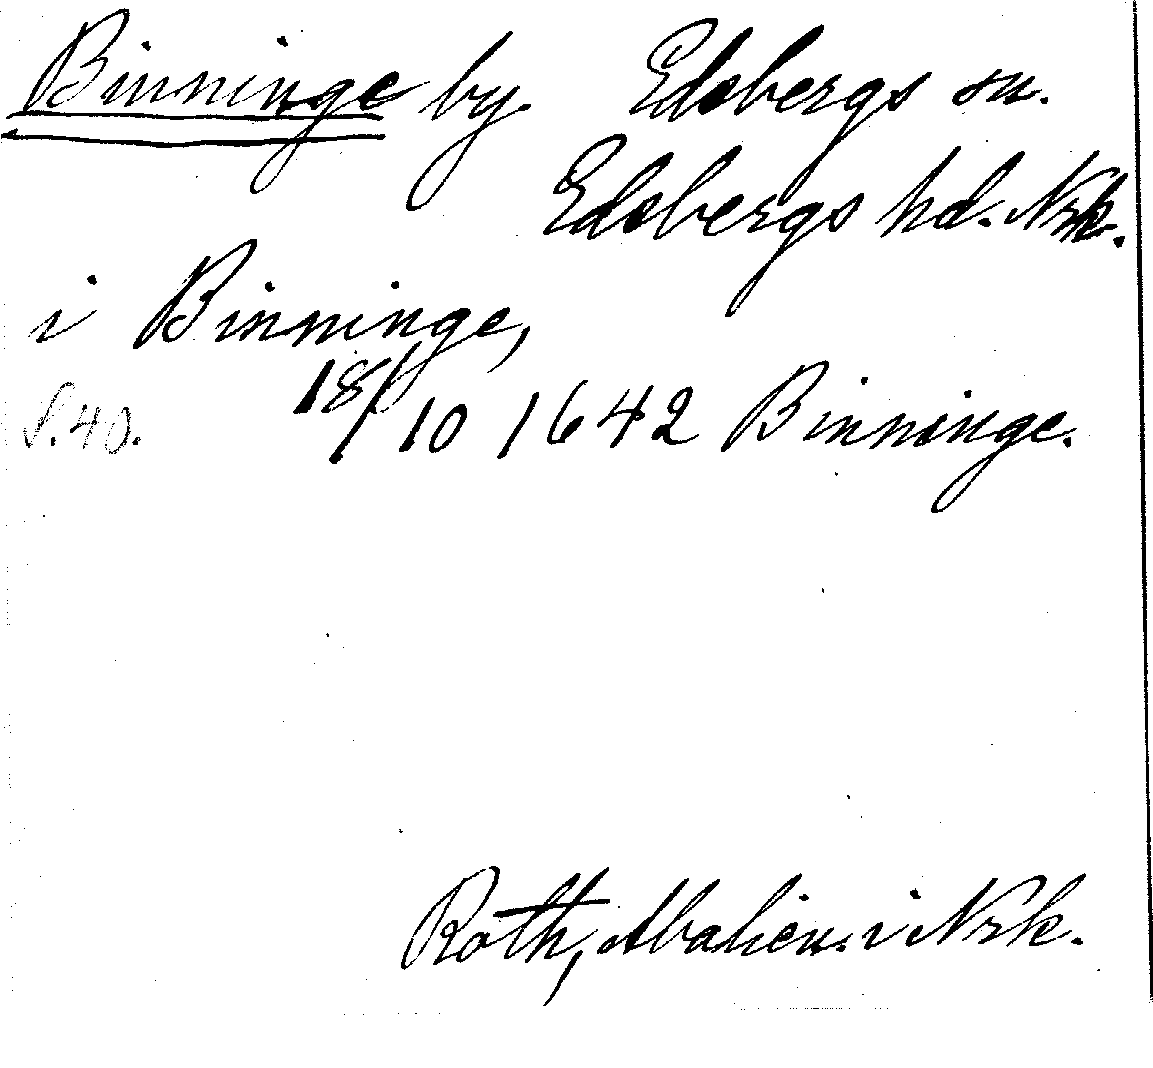 Binninge by. Edsbergs sn.
Edsbergs hd. Nrk.
i Binninge,
S. 40. 18/10 1642 Binninge.
Roth, Abalien. i Nrk.